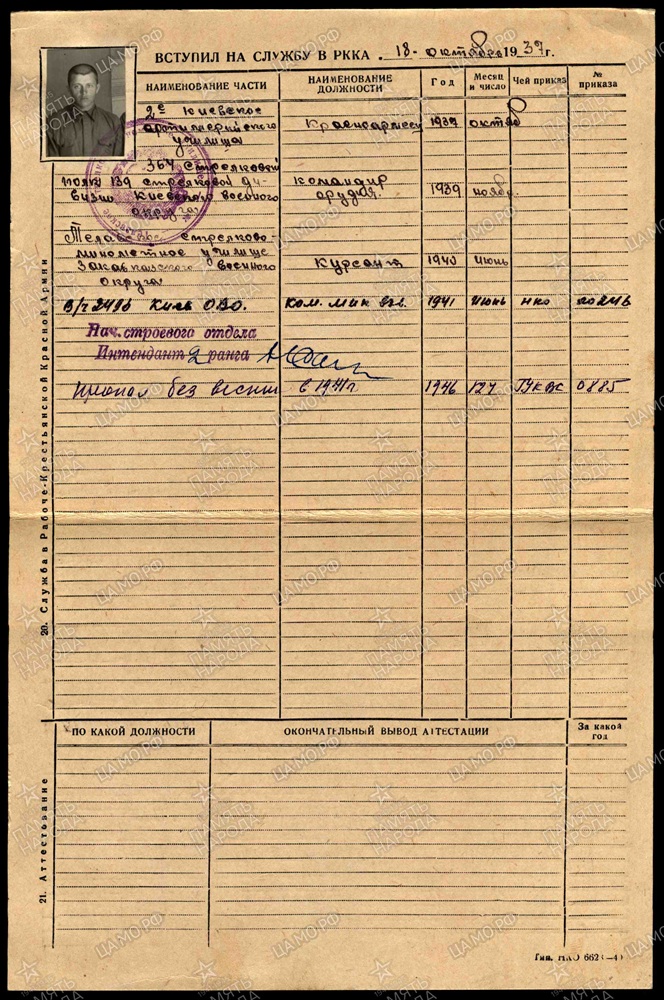 ВСТУПИЛ НА СЛУЖБУ В РККА 18 октября 1937 г.
НАИМЕНОВАНИЕ ЧАСТИ
НАИМЕНОВАНИЕ ДОЛЖНОСТИ
Год
Месяц и число
Чей приказ
№ приказа
2е Киевское
артиллерийского
училища
Красноармеец 1937 октяб
364 стрелковой
полк 139 стрелковой ди-
визио Киевского военного
округа
командир
орудия. 1939 ноябр.
стрелково-
минометное училище
Закавказского военного
округа
Курсант 1940 июнь
В/ч 2496 Киев ОВО. Ком. мин взв. 1941 Июнь НКО
Нач. строевого отдела
Интендант 2 ранга
пропал без вести в 1941 г 1946 ГУК 0885
20. Служба в Рабоче-Крестьянской Красной Армии
ПО КАКОЙ ДОЛЖНОСТИ
ОКОНЧАТЕЛЬНЫЙ ВЫВОД АТТЕСТАЦИИ
За какой год
21. Аттестование
Тип. НКО 662
ПАМЯТЬ НАРОДА
ЦАМО.РФ